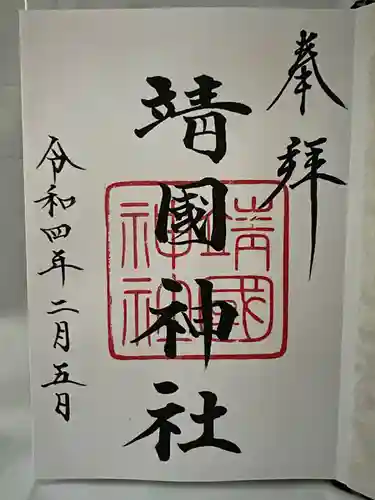 奉拝
靖國神社
靖國
神社
令和四年二月五日